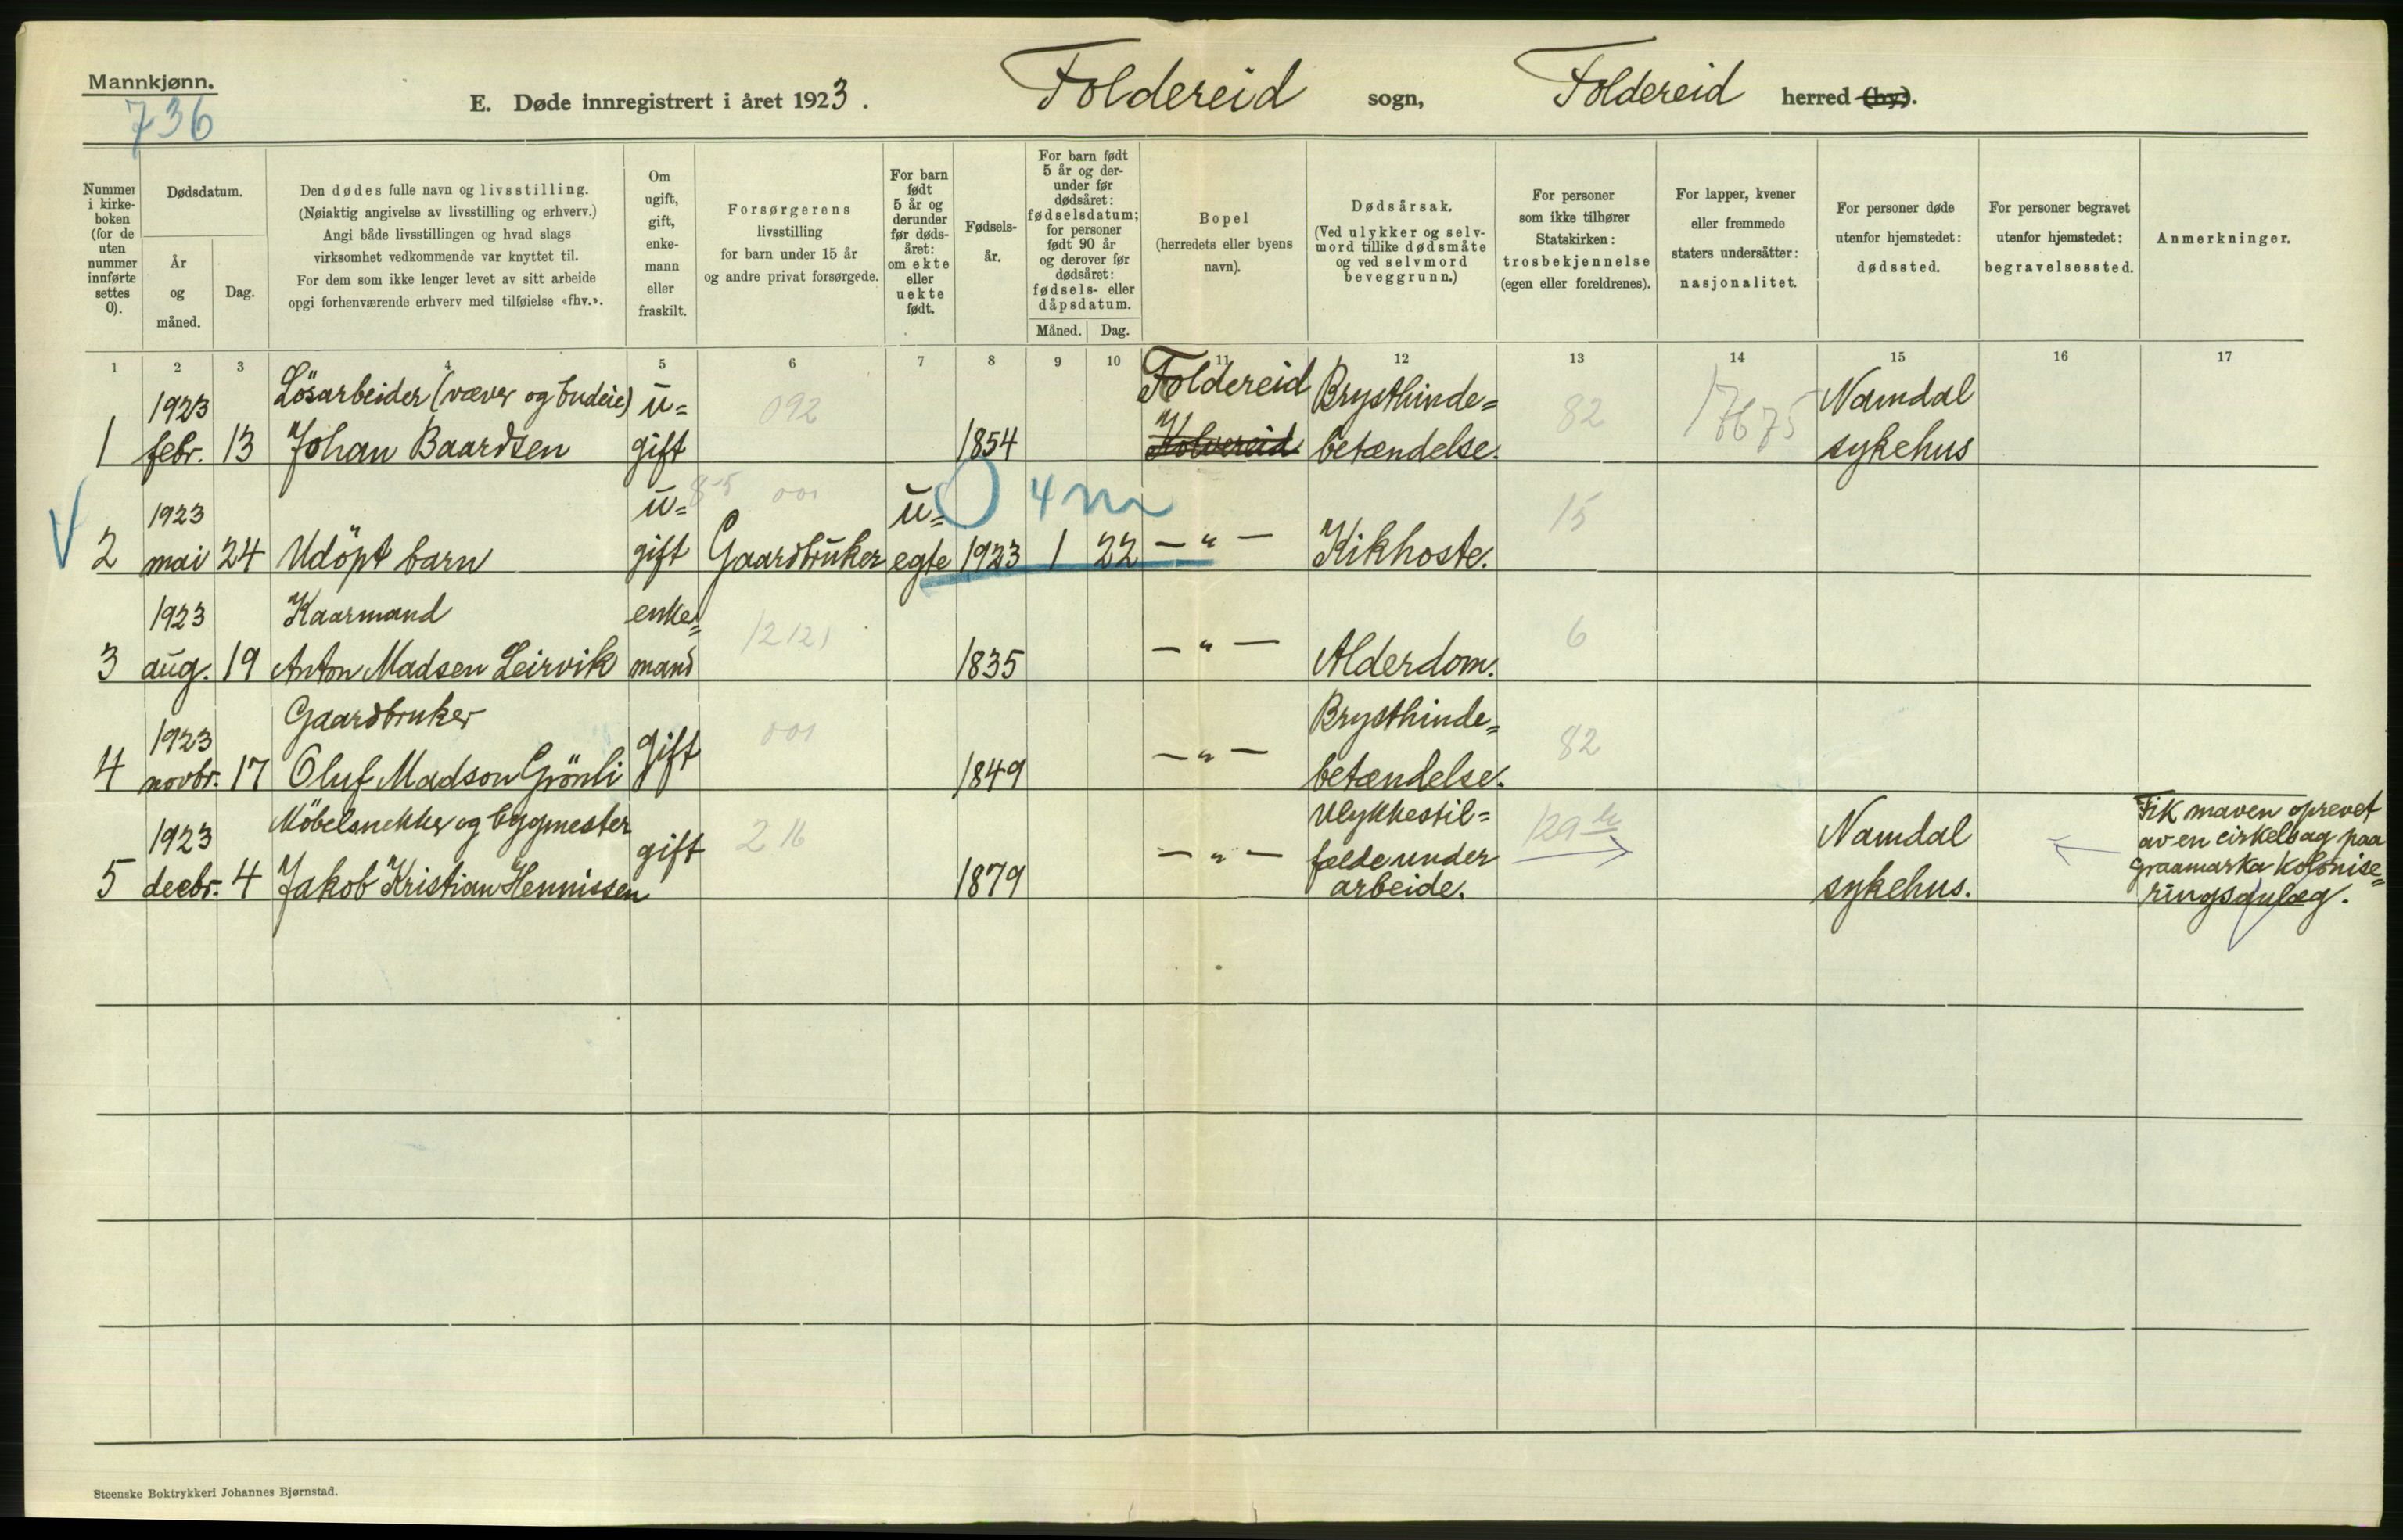 Mannkjønn.
736
E. Døde innregistrert i året 1923. Foldereid sogn, Foldereid herred (by).
Nummer i kirke-boken (for de uten nummer innførte settes 0).
Dødsdatum.
År og måned.
Dag.
Den dødes fulle navn og livsstilling.
(Nøiaktig angivelse av livsstilling og erhverv.)
Angi både livsstillingen og hvad slags
virksomhet vedkommende var knyttet til.
For dem som ikke lenger levet av sitt arbeide
opgi forhenværende erhverv med tilføielse «fhv.».
Om ugift, gift, enke-mann eller fraskilt.
Forsørgerens livsstilling for barn under 15 år og andre privat forsørgede.
For barn født 5 år og derunder før døds-året: om ekte eller uekte født.
Fødsels-år.
For barn født 5 år og der-under før dødsåret: fødselsdatum; for personer født 90 år og derover før dødsåret: fødsels- eller dåpsdatum.
Måned. Dag.
Bopel (herredets eller byens navn).
Dødsårsak. (Ved ulykker og selv-mord tillike dødsmåte og ved selvmord beveggrunn.)
For personer som ikke tilhører Statskirken: trosbekjennelse (egen eller foreldrenes).
For lapper, kvener eller fremmede staters undersåtter: nasjonalitet.
For personer døde utenfor hjemstedet: dødssted.
For personer begravet utenfor hjemstedet: begravelsessted.
Anmerkninger.
1 2 3 4 5 6 7 8 9 10 11 12 13 14 15 16 17
1923 Lösarbeider (væver og budeie) u= 092 Foldereid Brysthinde= 82 17675 Namdal
1 febr. 13 Johan Baardsen gift 1854 Kolvereid betændelse. sykehus
1923 u= 85 001 u= 0 4 m 15
2 mai 24 Udöpt barn gift Gaardbruker egte 1923 1 22 — " — Kikhoste.
1923 Kaarmand enke= 12121 6
3 aug. 19 Anton Madsen Leirvik mand 1835 — " — Alderdom.
1923 Gaardbruker 001 Brysthinde= 82
4 novbr. 17 Oluf Madson Grönli gift 1849 — " — betændelse.
1923 Möbelsnekker og bygmester gift 216 Ulykkestil= Namdal Fik maven oprevet
av en cirkelsag paa
5 decbr. 4 Jakob Kristian Hennissen 1879 — " — fælde under arbeide. sykehus. Graamarka kolonise=
ringsanlæg.
Steenske Boktrykkeri Johannes Bjørnstad.